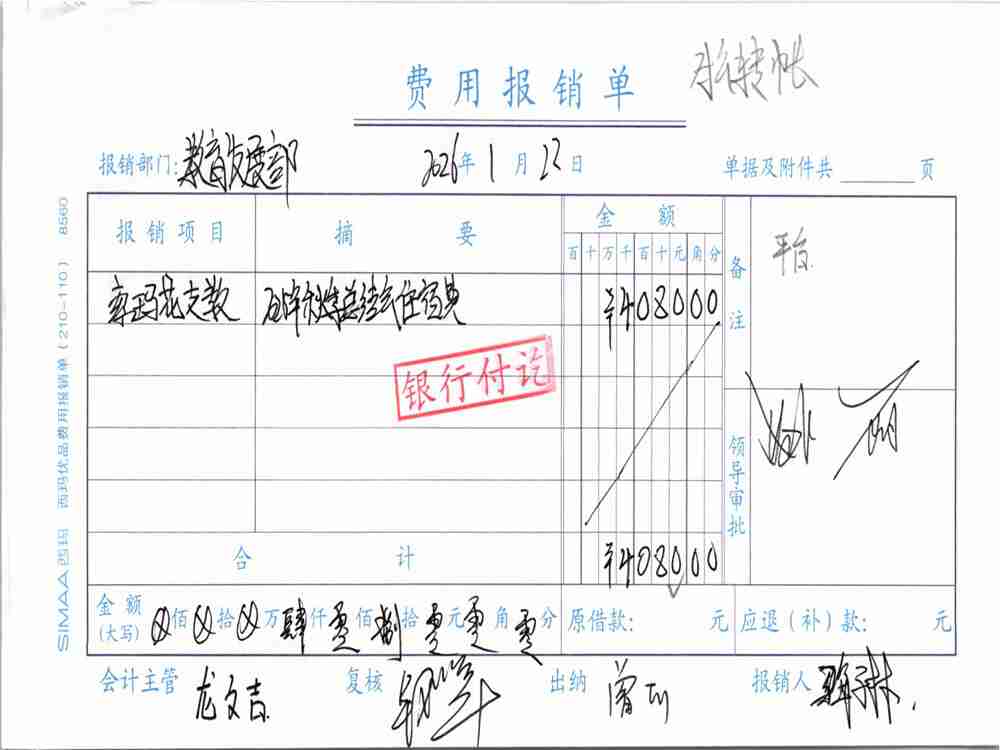 费用报销单 转帐
报销部门: 教育发展部 2026年1月22日 单据及附件共 页
报销项目 摘 要 金 额 备注
百十万千百十元角分
支教 住宿费 ¥408000
银行付讫
领导审批
合 计 ¥408000
金额(大写) 佰 拾 万肆仟零佰捌拾零元零角零分 原借款: 元 应退(补)款: 元
会计主管 龙文吉 复核 出纳 曾 报销人
SIMAA西玛 西玛优品费用报销单(210-110) 8560